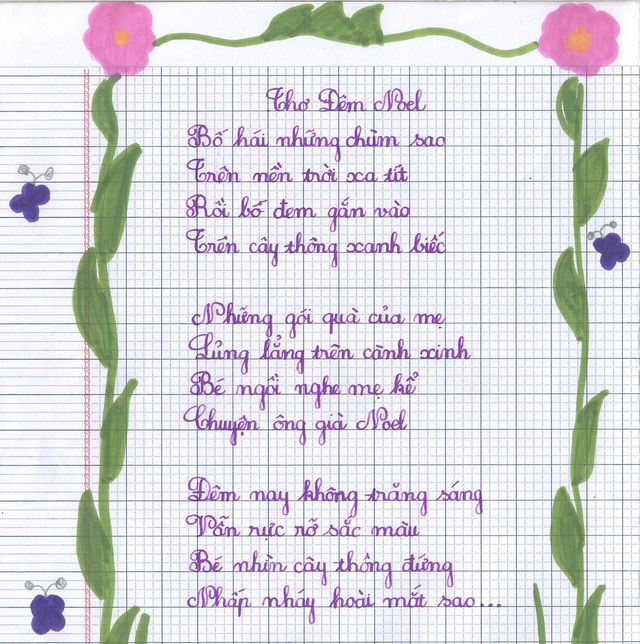 Thơ Đêm Noel
Bố hái những chùm sao
Trên nền trời xa tít
Rồi bố đem gắn vào
Trên cây thông xanh biếc
Những gói quà của mẹ
Lủng lẳng trên cành xinh
Bé ngồi nghe mẹ kể
Chuyện ông già Noel
Đêm nay không trăng sáng
Vẫn rực rỡ sắc màu
Bé nhìn cây thông đứng
Nhấp nháy hoài mắt sao...